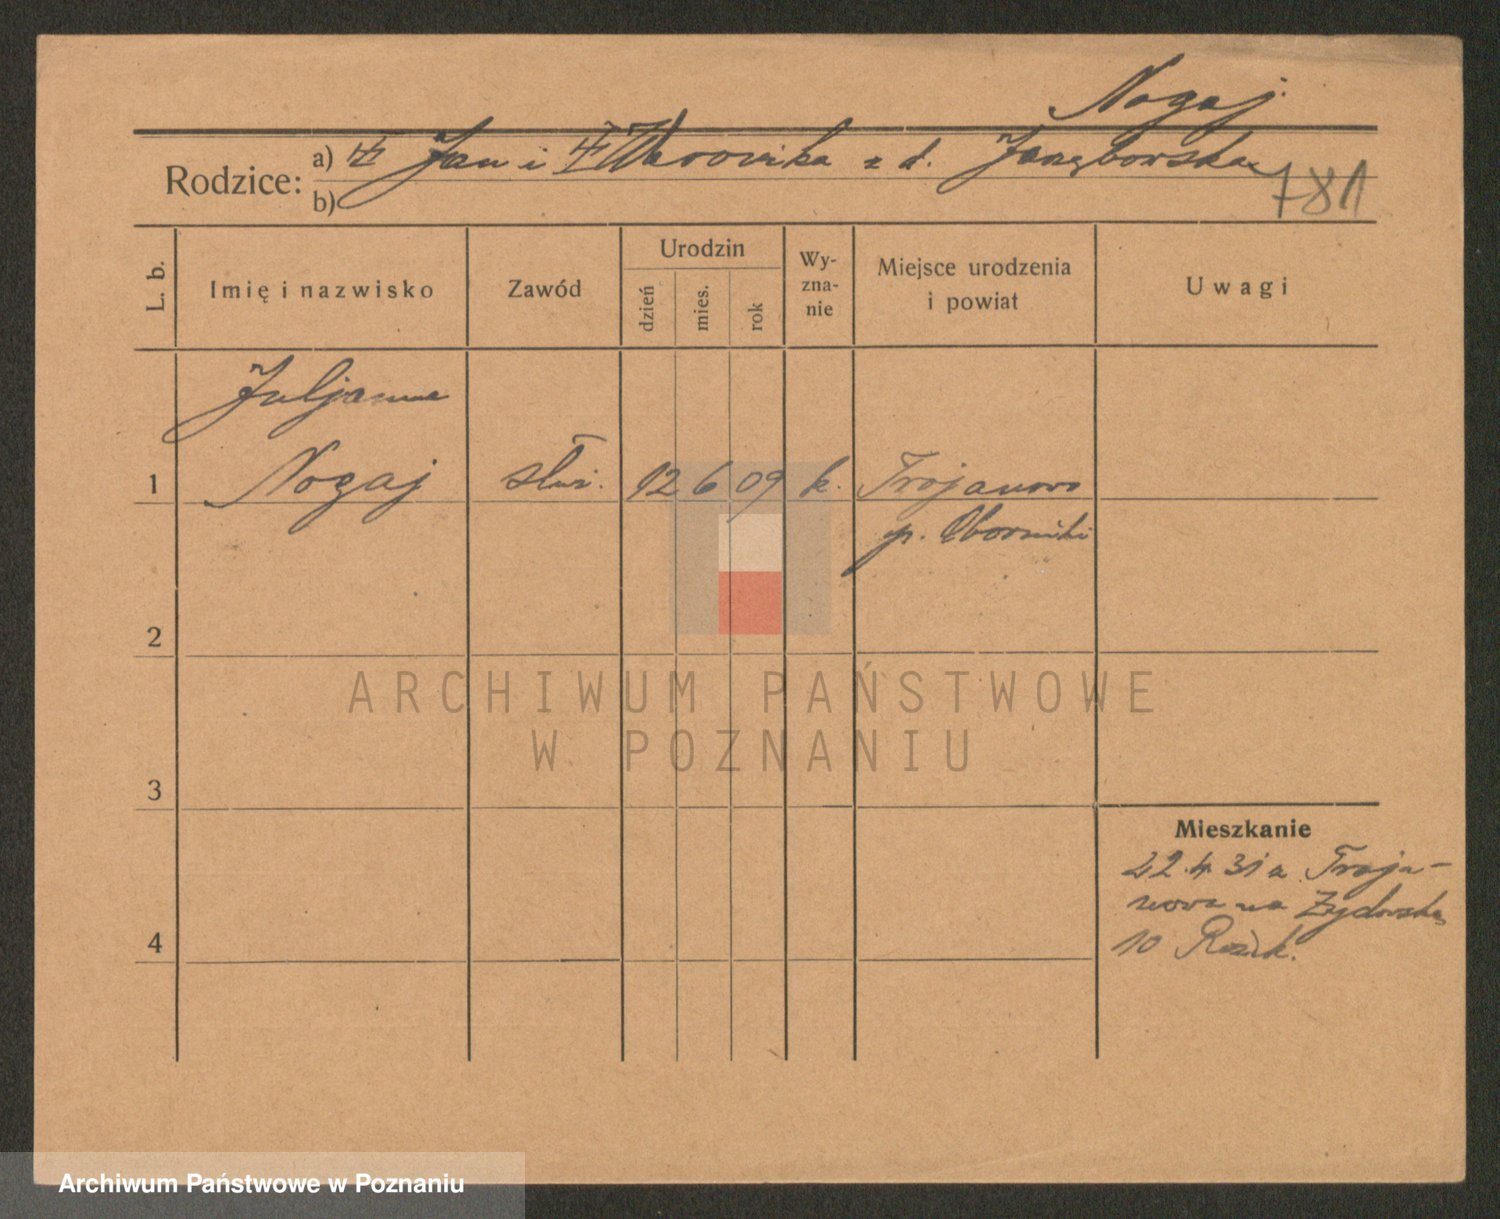 Nogaj
Rodzice:
a) Jan i Weronika z d.
b)
781
L. b.
Imię i nazwisko
Zawód
Urodzin
dzień
mies.
rok
Wy-
zna-
nie
Miejsce urodzenia
i powiat
Uwagi
Juljanna
1 Nogaj służ. 12 6 09 k. Trojanowo
p. Oborniki
2
3
4
Mieszkanie
22.4.31 z Troja-
nowa na Żydowska
10
ARCHIWUM PAŃSTWOWE
W POZNANIU
Archiwum Państwowe w Poznaniu